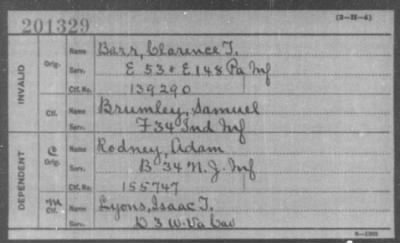 201329
(3-H-4)
INVALID
Orig. Name Barr, Clarence T.
Serv. E 53 & E 148 Pa Inf
Ctf. No. 139290
Ctf. Name Brumley, Samuel
Serv. F 34 Ind Inf
DEPENDENT
C Orig. Name Rodney, Adam
Serv. B 34 N. J. Inf
Ctf. No. 155747
Ctf. Name Lyons, Isaac T.
Serv. D 3 W. Va Cav